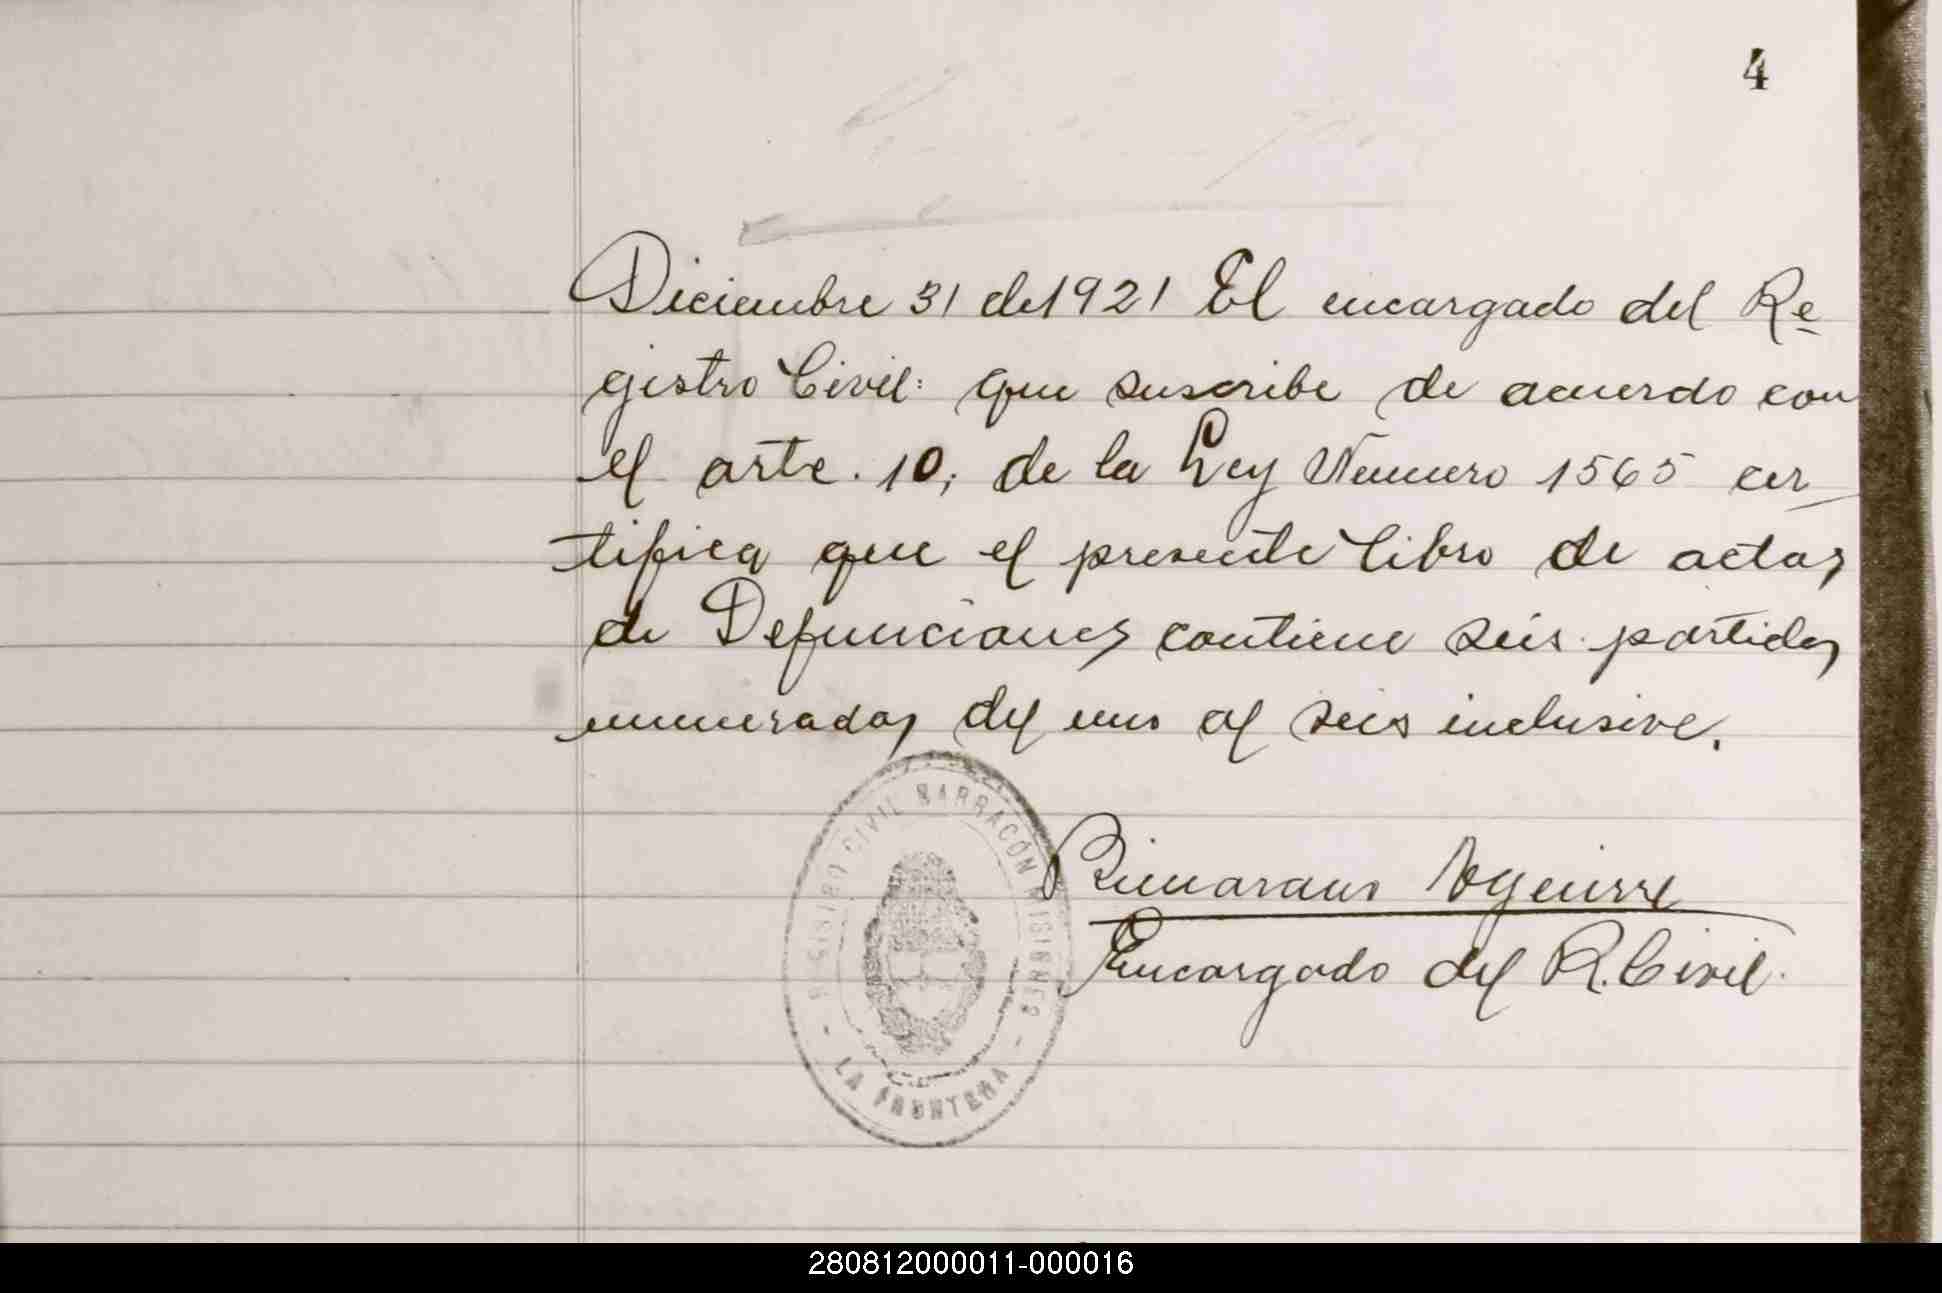 4
Diciembre 31 de 1921 El encargado del Re-
gistro Civil: que suscribe de acuerdo con
el arte. 10, de la Ley Numero 1565 cer
tifica que el presente libro de actas
de Defunciones contiene seis partidas
enumeradas del uno al seis inclusive.
REGISTRO CIVIL BARRACÓN MISIONES
- LA FRONTERA -
Aguirre
Encargado del R. Civil.
280812000011-000016